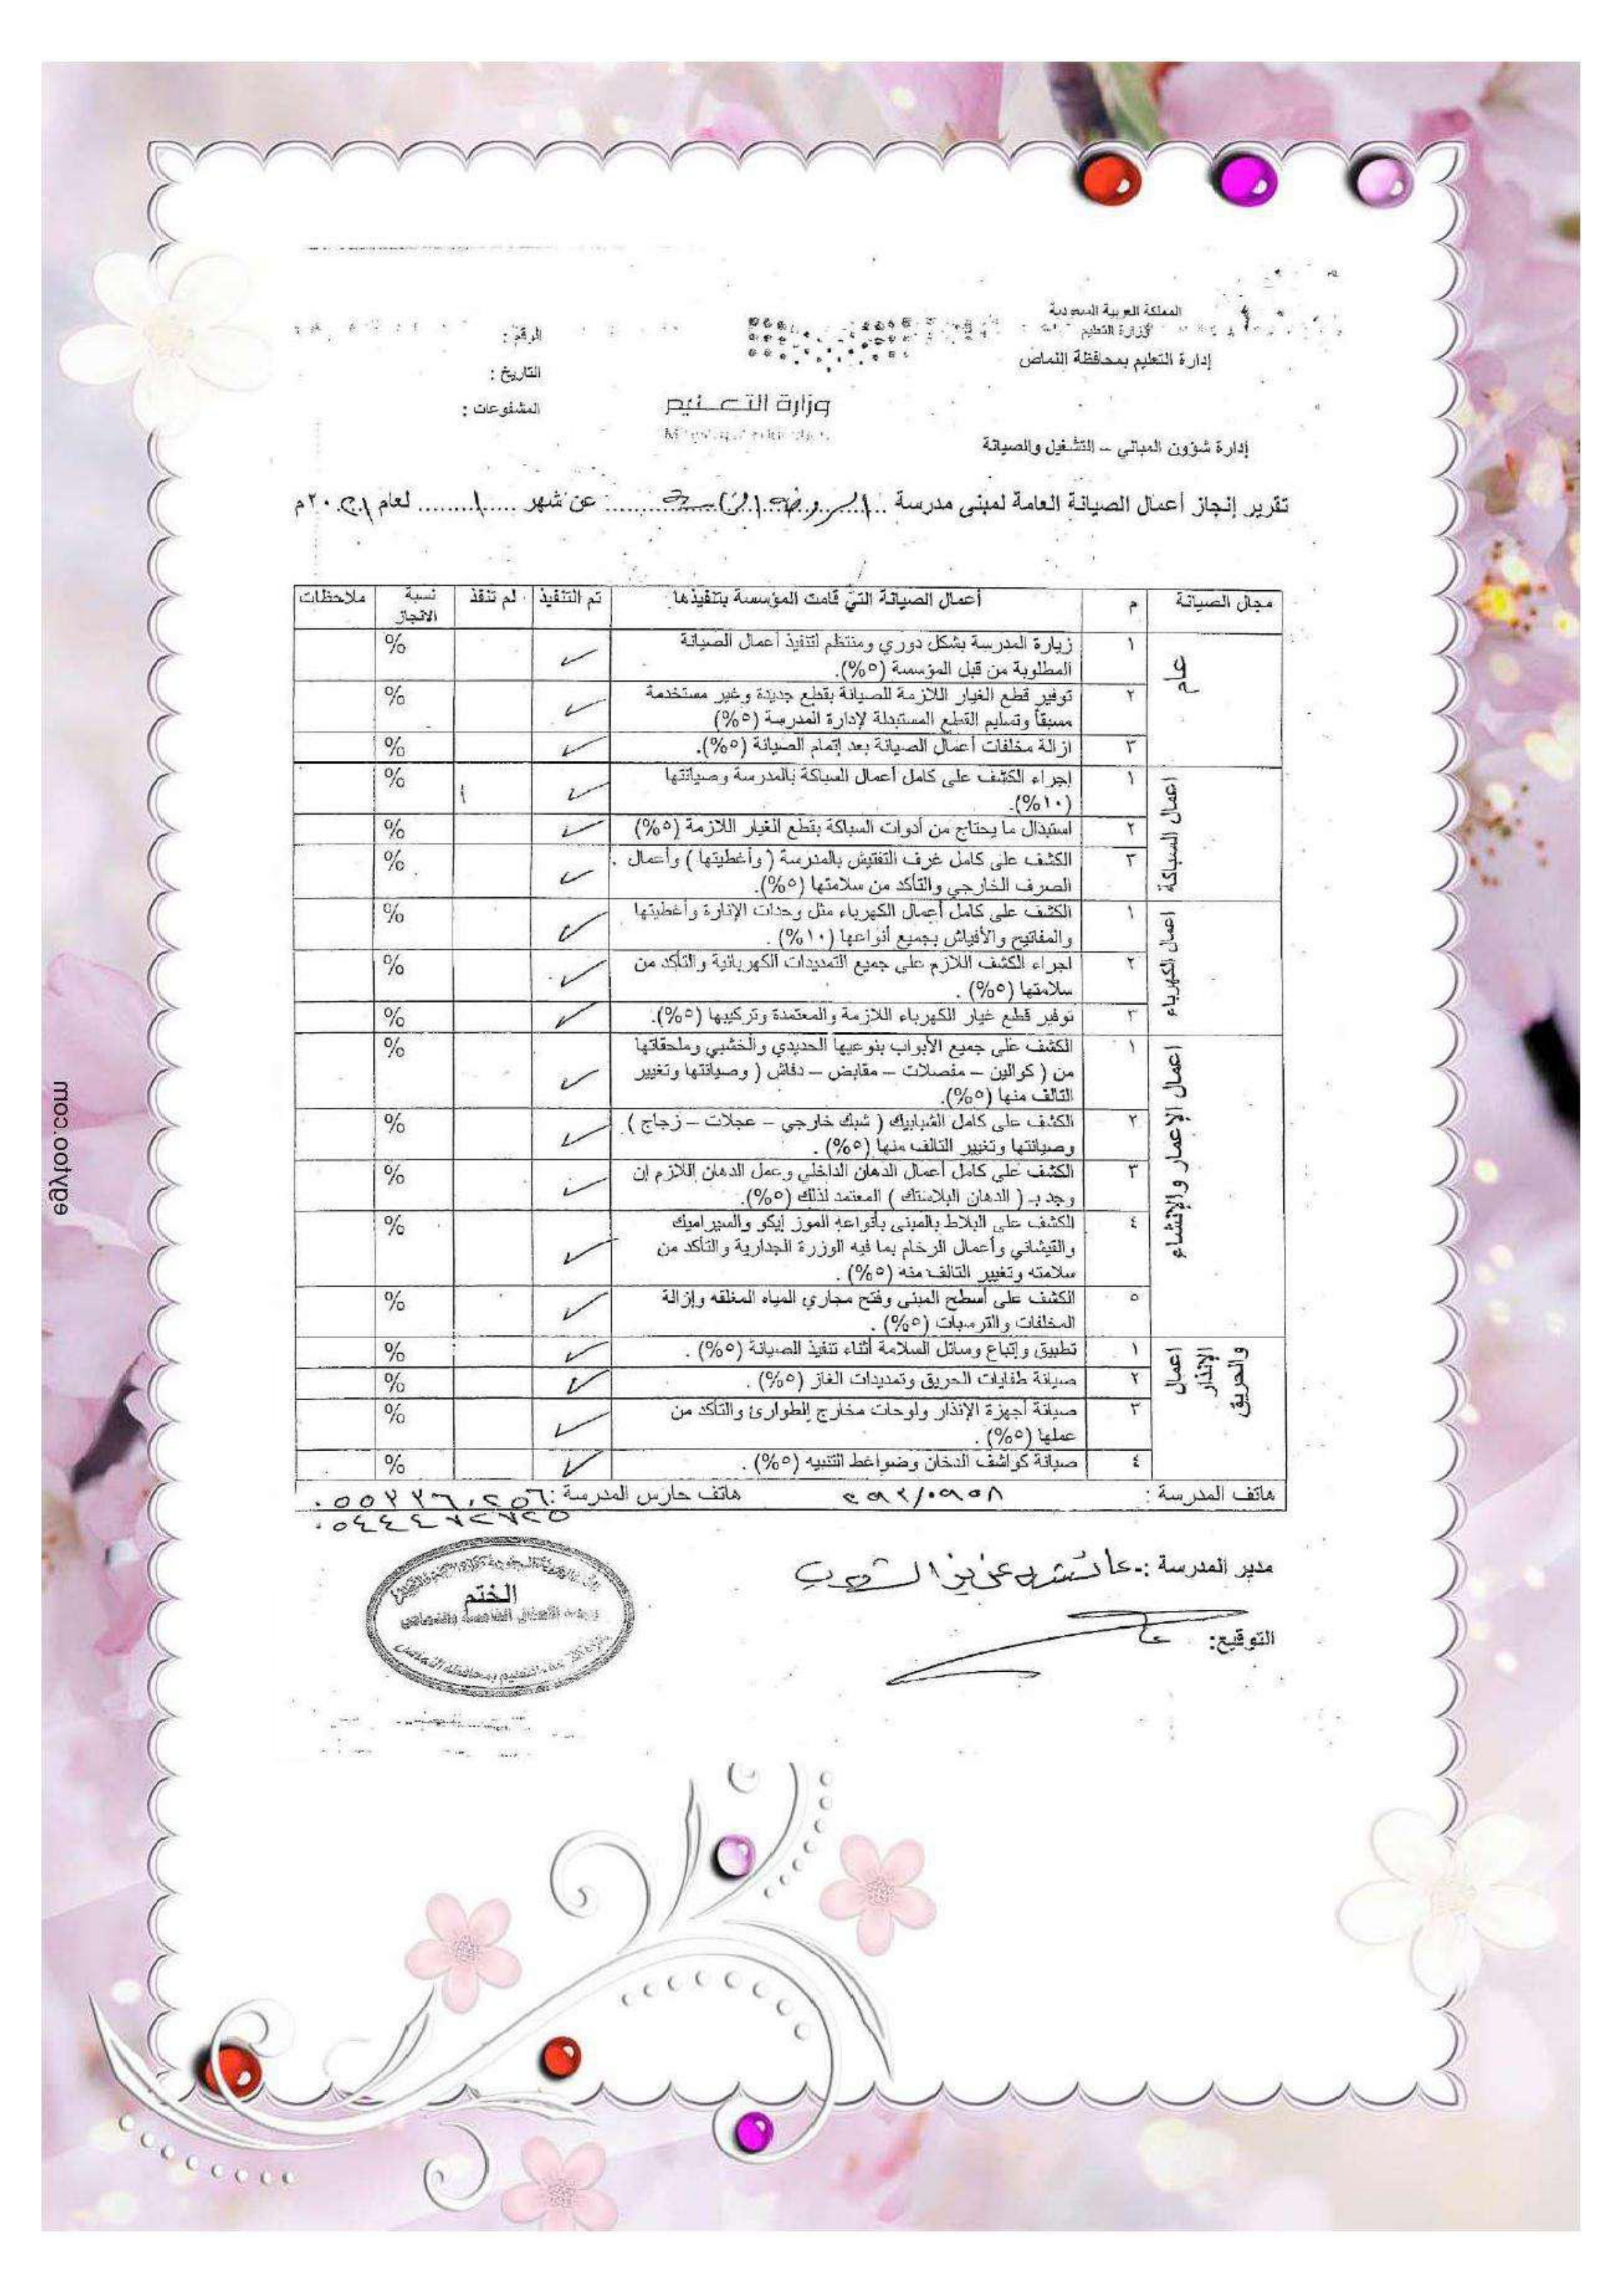 المملكة العربية السعودية
وزارة التعليم
إدارة التعليم بمحافظة النماص
إدارة شؤون المباني – التشغيل والصيانة
وزارة التعليم
الرقم :
التاريخ :
المشفوعات :
تقرير إنجاز أعمال الصيانة العامة لمبنى مدرسة الروضة الخامسة عن شهر ١ لعام ٢٠٢١م
مجال الصيانة م أعمال الصيانة التي قامت المؤسسة بتنفيذها تم التنفيذ لم تنفذ نسبة الانجاز ملاحظات
عام
١ زيارة المدرسة بشكل دوري ومنتظم لتنفيذ أعمال الصيانة %
المطلوبة من قبل المؤسسة (٥%).
٢ توفير قطع الغيار اللازمة للصيانة بقطع جديدة وغير مستخدمة %
مسبقاً وتسليم القطع المستبدلة لإدارة المدرسة (٥%)
٣ ازالة مخلفات أعمال الصيانة بعد إتمام الصيانة (٥%). %
اعمال السباكة
١ إجراء الكشف على كامل أعمال السباكة بالمدرسة وصيانتها %
(١٠%).
٢ استبدال ما يحتاج من أدوات السباكة بقطع الغيار اللازمة (٥%) %
٣ الكشف على كامل غرف التفتيش بالمدرسة ( وأغطيتها ) وأعمال %
الصرف الخارجي والتأكد من سلامتها (٥%).
اعمال الكهرباء
١ الكشف على كامل أعمال الكهرباء مثل وحدات الإنارة وأغطيتها %
والمفاتيح والأفياش بجميع أنواعها (١٠%) .
٢ اجراء الكشف اللازم على جميع التمديدات الكهربائية والتأكد من %
سلامتها (٥%) .
٣ توفير قطع غيار الكهرباء اللازمة والمعتمدة وتركيبها (٥%). %
اعمال الإعمار والإنشاء
١ الكشف على جميع الأبواب بنوعيها الحديدي والخشبي وملحقاتها %
من ( كوالين – مفصلات – مقابض – دفاش ) وصيانتها وتغيير
التالف منها (٥%).
٢ الكشف على كامل الشبابيك ( شبك خارجي – عجلات – زجاج ) %
وصيانتها وتغيير التالف منها (٥%) .
٣ الكشف على كامل أعمال الدهان الداخلي وعمل الدهان اللازم إن %
وجد بـ ( الدهان البلاستك ) المعتمد لذلك (٥%).
٤ الكشف على البلاط بالمبنى بأنواعه الموزايكو والسيراميك %
والقيشاني وأعمال الرخام بما فيه الوزرة الجدارية والتأكد من
سلامته وتغيير التالف منه (٥%) .
٥ الكشف على أسطح المبنى وفتح مجاري المياه المغلقه وإزالة %
المخلفات والترسبات (٥%) .
اعمال الإنذار والحريق
١ تطبيق وإتباع وسائل السلامة أثناء تنفيذ الصيانة (٥%) . %
٢ صيانة طفايات الحريق وتمديدات الغاز (٥%) . %
٣ صيانة أجهزة الإنذار ولوحات مخارج الطوارئ والتأكد من %
عملها (٥%) .
٤ صيانة كواشف الدخان وضواغط التنبيه (٥%) . %
هاتف المدرسة :
هاتف حارس المدرسة :
مدير المدرسة :-
التوقيع:
الختم
egytoo.com